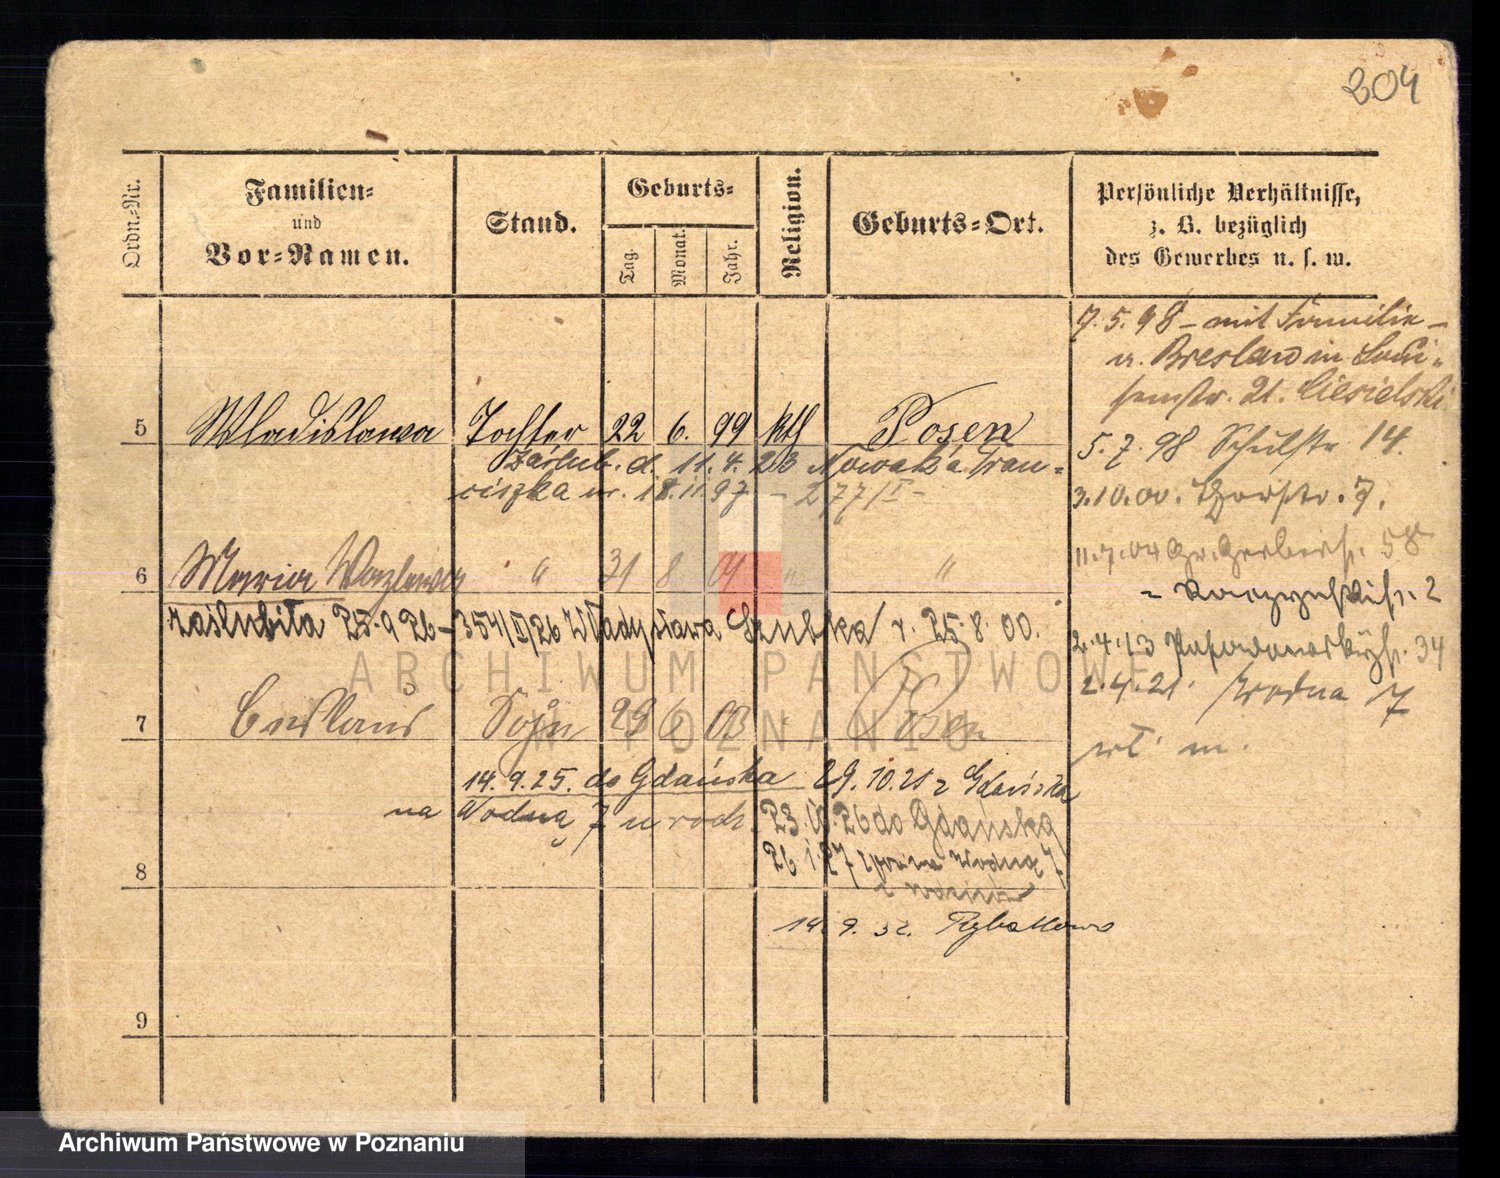 204
Ordn.-Nr.
Familien-
und
Vor-Namen.
Stand.
Geburts-
Tag.
Monat.
Jahr.
Religion.
Geburts-Ort.
Persönliche Verhältnisse,
z. B. bezüglich
des Gewerbes u. s. w.
7.5.98 – mit Familie –
n. Breslau in Loui-
senstr. 21. Ciesielski
5 Wladislawa Tochter 22 6. 99 kth Posen
5.7.98 Schulstr 14.
zaślub. d. 11.4.23 Nowaka Fran-
ciszka ur. 18.11.97 – 277/I –
3.10.00. Thorstr. 7.
11.7.04 Gr. Gerberst. 58
6 Maria " 31 8 04 " "
2
zaślubiła 25.9 26 – 354/I/26 Władysława r. 25.8.00.
2.4.13 34
ARCHIWUM PAŃSTWOWE
W POZNANIU
2.4.21. Wodna 7
7 Ceslaus Sohn 29 6 03 Posen
14.9.25. do Gdańska 29.10.21 z Gdańska
na Wodną 7 u rodz. 23. 26 do Gdańska
26 1.27 Wodna 7
8
14.9.32. Rybakowo
9
Archiwum Państwowe w Poznaniu